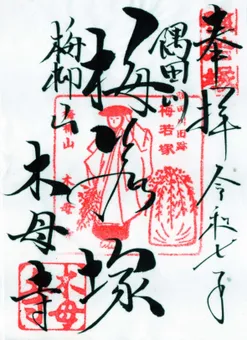 奉拝 令和七年
隅田川
梅若塚
梅柳山
木母寺
隅田川旧跡
梅若塚
梅柳山 木母寺
木母